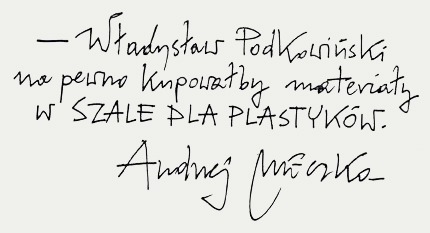 — Władysław Podkowiński
na pewno kupowałby materiały
w SZALE DLA PLASTYKÓW.
Andrzej Mleczko